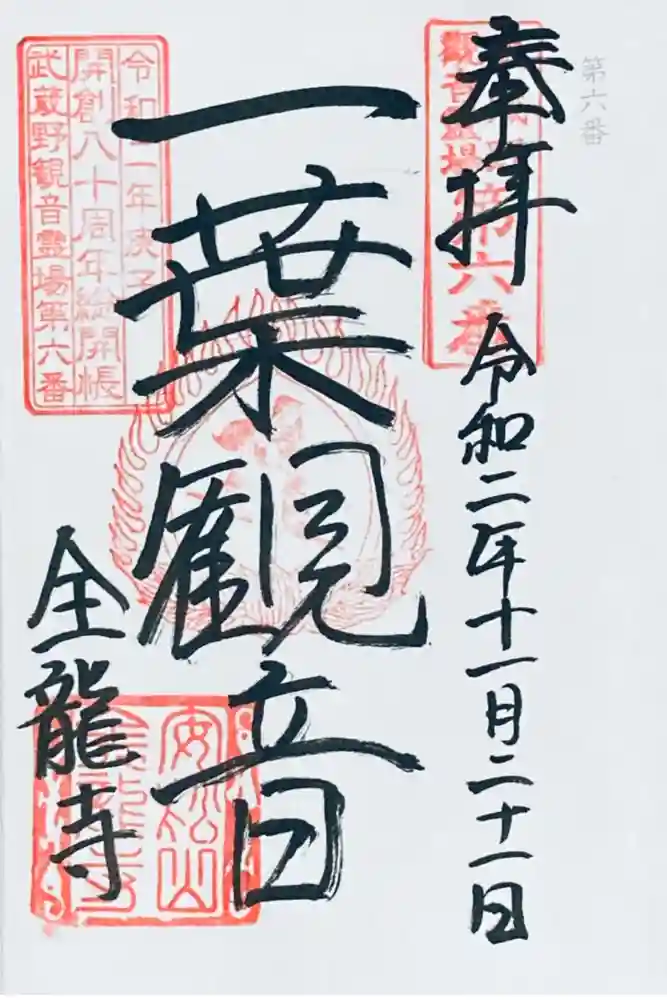 第六番
奉拝
令和二年十一月二十一日
第六番
一葉観音
令和二年庚子
開創八十周年総開帳
武蔵野観音霊場第六番
全龍寺
安松山